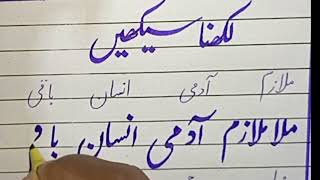 لکھنا سیکھیں
ملازم آدمی انسان باقی
ملا ملازم آدمی انسان با